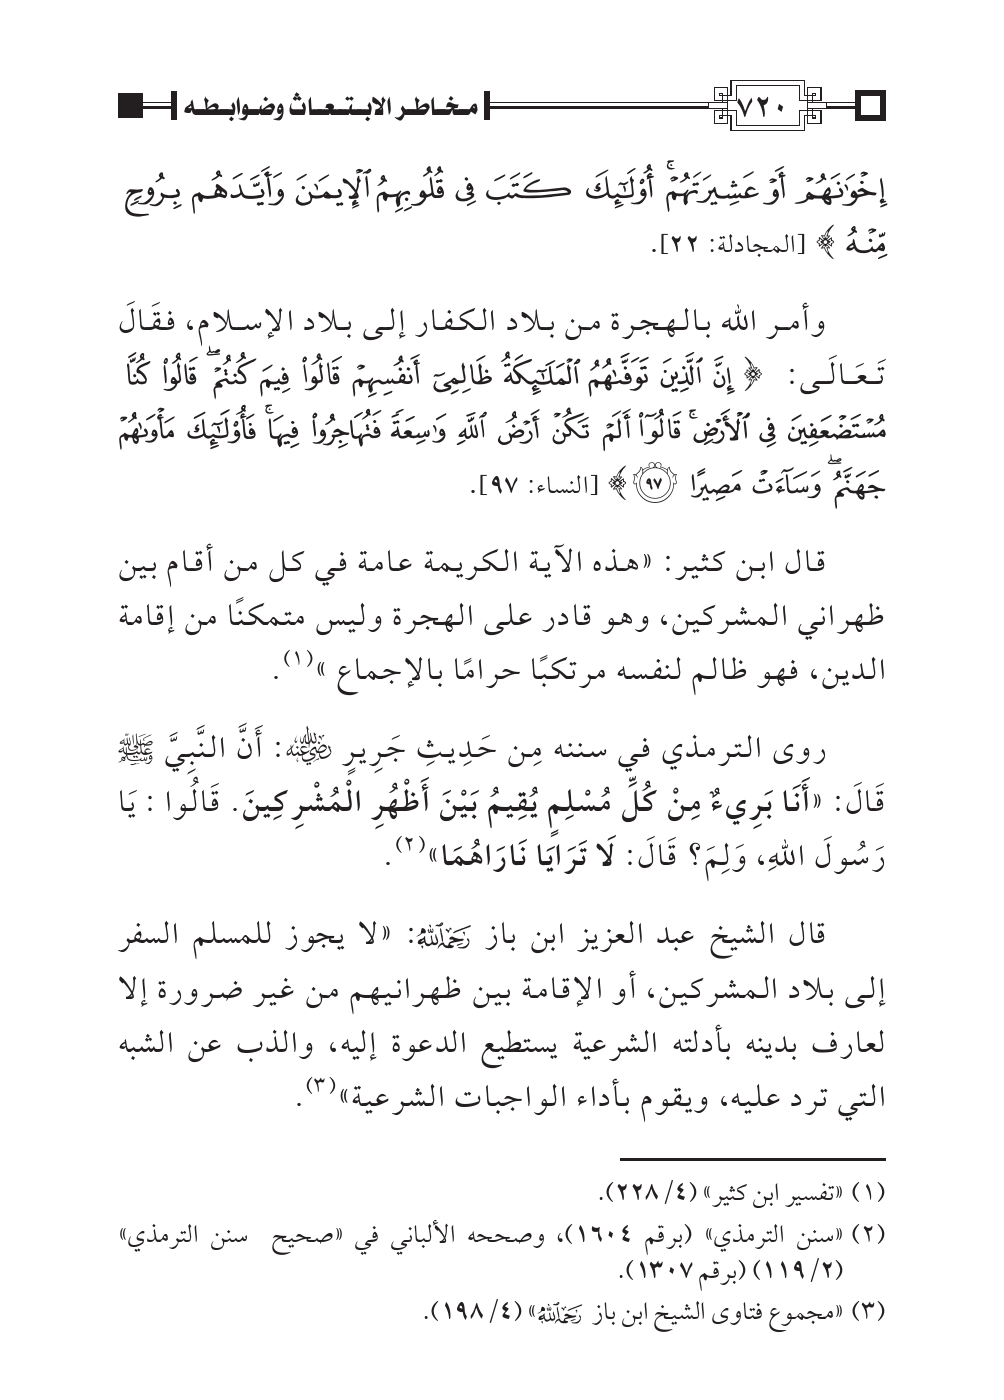 ٧٢٠ مخاطر الابتعاث وضوابطه
إِخْوَٰنَهُمْ أَوْ عَشِيرَتَهُمْ ۚ أُو۟لَـٰٓئِكَ كَتَبَ فِى قُلُوبِهِمُ ٱلْإِيمَـٰنَ وَأَيَّدَهُم بِرُوحٍ
مِّنْهُ ﴾ [المجادلة: ٢٢].
وأمر الله بالهجرة من بلاد الكفار إلى بلاد الإسلام، فقَالَ
تَعَالَى: ﴿ إِنَّ ٱلَّذِينَ تَوَفَّىٰهُمُ ٱلْمَلَـٰٓئِكَةُ ظَالِمِىٓ أَنفُسِهِمْ قَالُوا۟ فِيمَ كُنتُمْ ۖ قَالُوا۟ كُنَّا
مُسْتَضْعَفِينَ فِى ٱلْأَرْضِ ۚ قَالُوٓا۟ أَلَمْ تَكُنْ أَرْضُ ٱللَّهِ وَٰسِعَةً فَتُهَاجِرُوا۟ فِيهَا ۚ فَأُو۟لَـٰٓئِكَ مَأْوَىٰهُمْ
جَهَنَّمُ ۖ وَسَآءَتْ مَصِيرًا ٩٧ ﴾ [النساء: ٩٧].
قال ابن كثير: «هذه الآية الكريمة عامة في كل من أقام بين
ظهراني المشركين، وهو قادر على الهجرة وليس متمكنًا من إقامة
الدين، فهو ظالم لنفسه مرتكبًا حرامًا بالإجماع »(١).
روى الترمذي في سننه مِن حَدِيثِ جَرِيرٍ رضي الله عنه: أَنَّ النَّبِيَّ ﷺ
قَالَ: «أَنَا بَرِيءٌ مِنْ كُلِّ مُسْلِمٍ يُقِيمُ بَيْنَ أَظْهُرِ الْمُشْرِكِينَ. قَالُوا : يَا
رَسُولَ اللهِ، وَلِمَ؟ قَالَ: لَا تَرَايَا نَارَاهُمَا»(٢).
قال الشيخ عبد العزيز ابن باز رحمه الله: «لا يجوز للمسلم السفر
إلى بلاد المشركين، أو الإقامة بين ظهرانيهم من غير ضرورة إلا
لعارف بدينه بأدلته الشرعية يستطيع الدعوة إليه، والذب عن الشبه
التي ترد عليه، ويقوم بأداء الواجبات الشرعية»(٣).
(١) «تفسير ابن كثير» (٤/ ٢٢٨).
(٢) «سنن الترمذي» (برقم ١٦٠٤)، وصححه الألباني في «صحيح سنن الترمذي»
(٢/ ١١٩) (برقم ١٣٠٧).
(٣) «مجموع فتاوى الشيخ ابن باز رحمه الله» (٤/ ١٩٨).